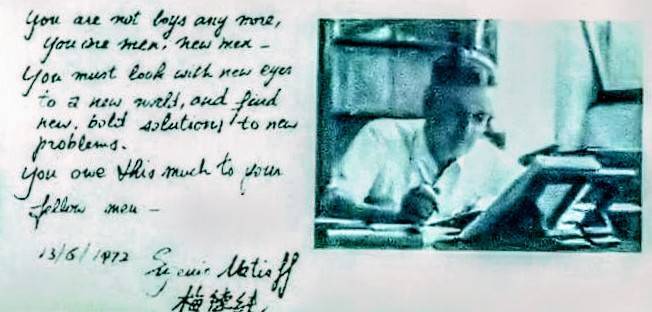 You are not boys any more,
you are men, new men –
You must look with new eyes
to a new world, and find
new, bold solutions to new
problems.
You owe this much to your
fellow men –
13/6/1972
梅